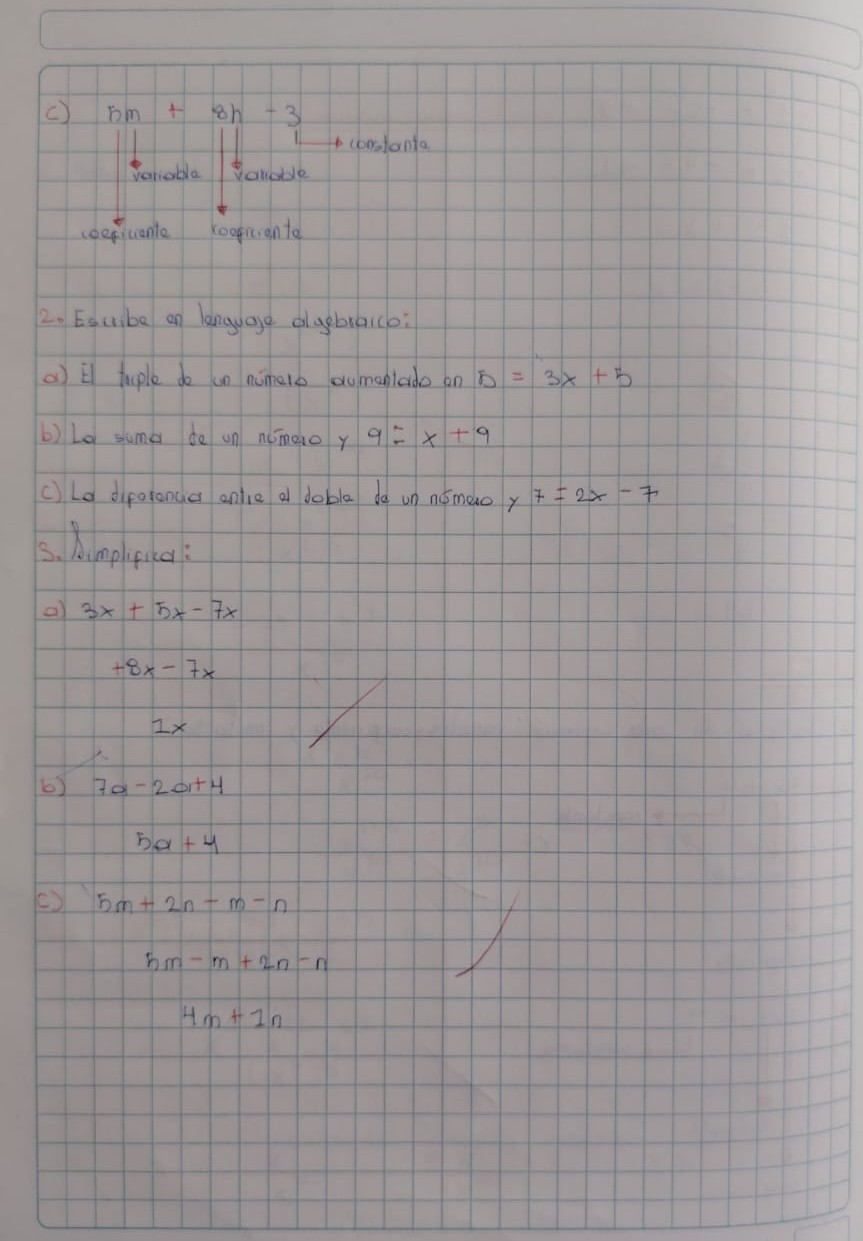 c) 5m + 8n - 3
constante
variable variable
coeficiente coeficiente
2. Escribe en lenguaje algebraico:
a) El triple de un número aumentado en 5 = 3x + 5
b) La suma de un número y 9 = x + 9
c) La diferencia entre el doble de un número y 7 = 2x - 7
3. Simplifica:
a) 3x + 5x - 7x
+8x - 7x
1x
b) 7a - 2a + 4
5a + 4
c) 5m + 2n - m - n
5m - m + 2n - n
4m + 1n